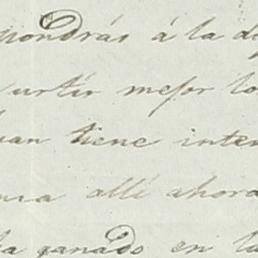 pondrás á la de
urtir mejor lo
uan tiene inten
ura allí ahora
ha ganado en la